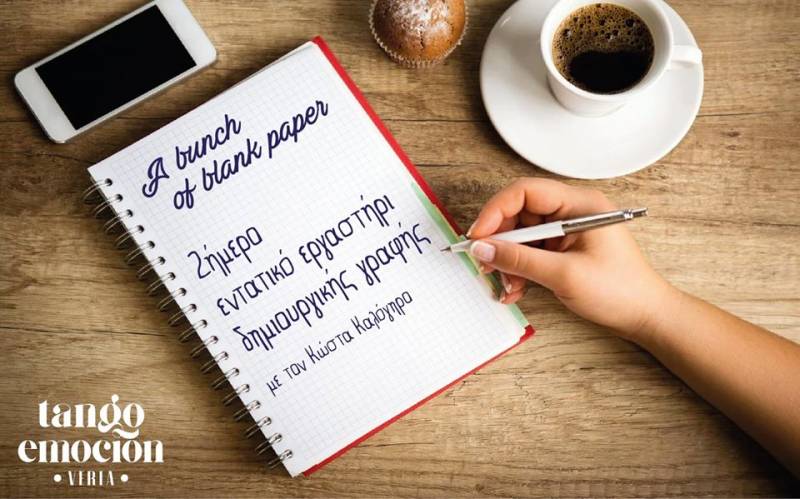 A bunch
of blank paper
2ήμερο
εντατικό εργαστήρι
δημιουργικής γραφής
με τον Κώστα Καλόγηρο
tango
emoción
• VERIA •